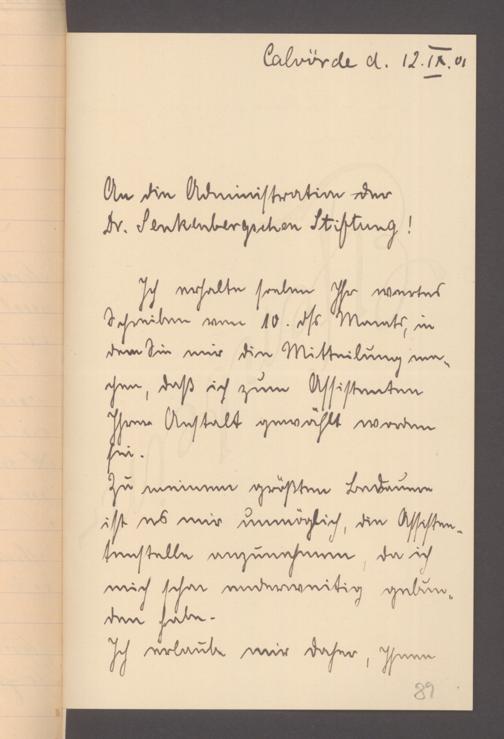 Calvörde d. 12.IX.01
An die Administration der
Dr. Senkenbergschen Stiftung!
Ich erhalte soeben Ihr wertes
Schreiben vom 10. ds Monats, in
dem Sie mir die Mitteilung ma-
chen, daß ich zum Assistenten
Ihrer Anstalt gewählt worden
sei.
Zu meinem größten Bedauern
ist es mir unmöglich, die Assisten-
tenstelle anzunehmen, da ich
mich schon anderweitig gebun-
den habe.
Ich erlaube mir daher, Ihnen
89